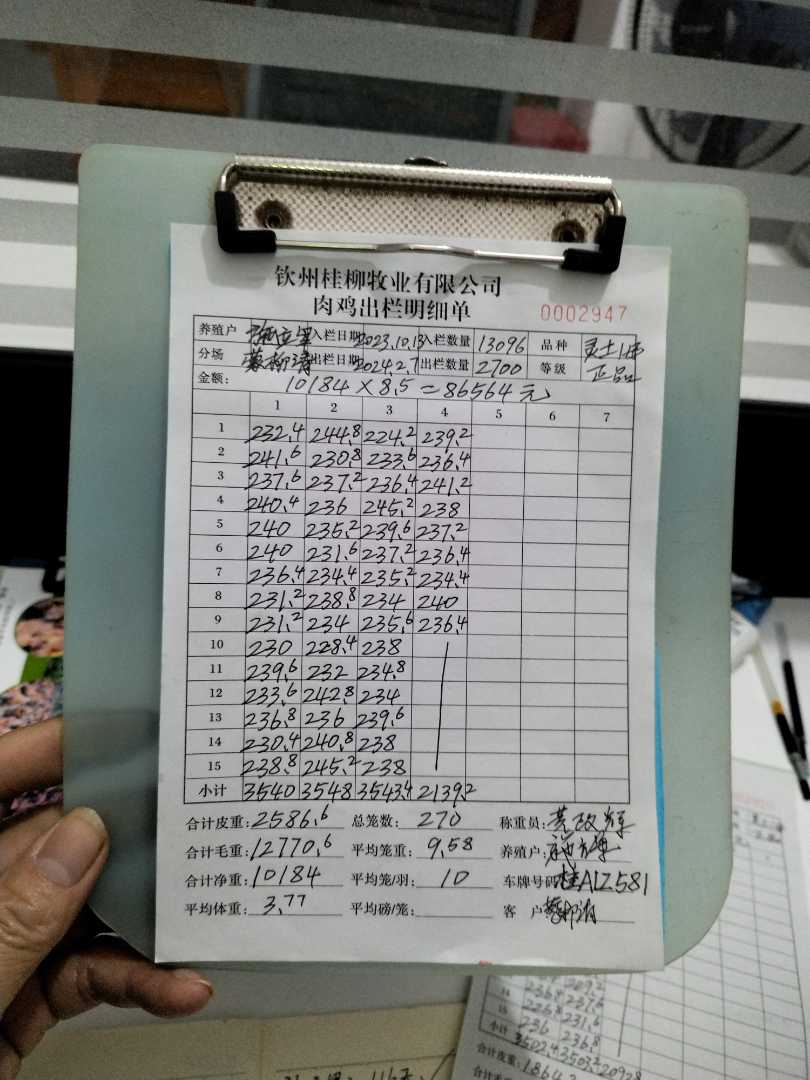 钦州桂柳牧业有限公司
肉鸡出栏明细单
0002947
养殖户 入栏日期 2023.10.13 入栏数量 13096 品种 灵土1号
分场 出栏日期 2024.2.7 出栏数量 2700 等级 正品
金额: 10184×8.5=86564元
1 2 3 4 5 6 7
1 232.4 244.8 224.2 239.2
2 241.6 230.8 233.6 236.4
3 237.6 237.2 236.4 241.2
4 240.4 236 245.2 238
5 240 235.2 239.6 237.2
6 240 231.6 237.2 236.4
7 236.4 234.4 235.2 234.4
8 231.2 238.8 234 240
9 231.2 234 235.6 236.4
10 230 228.4 238
11 239.6 232 234.8
12 233.6 242.8 234
13 236.8 236 239.6
14 230.4 240.8 238
15 238.8 245.2 238
小计 3540 3548 3543.4 2139.2
合计皮重: 2586.6 总笼数: 270 称重员:
合计毛重: 12770.6 平均笼重: 9.58 养殖户:
合计净重: 10184 平均笼/羽: 10 车牌号码 桂A1Z581
平均体重: 3.77 平均磅/笼: 客 户
14 236.8 237.6
15 226.8 231.6
小计 236 236.8
3502.4 3503.2 2092.8
合计皮重: 1864.2
合计毛重: